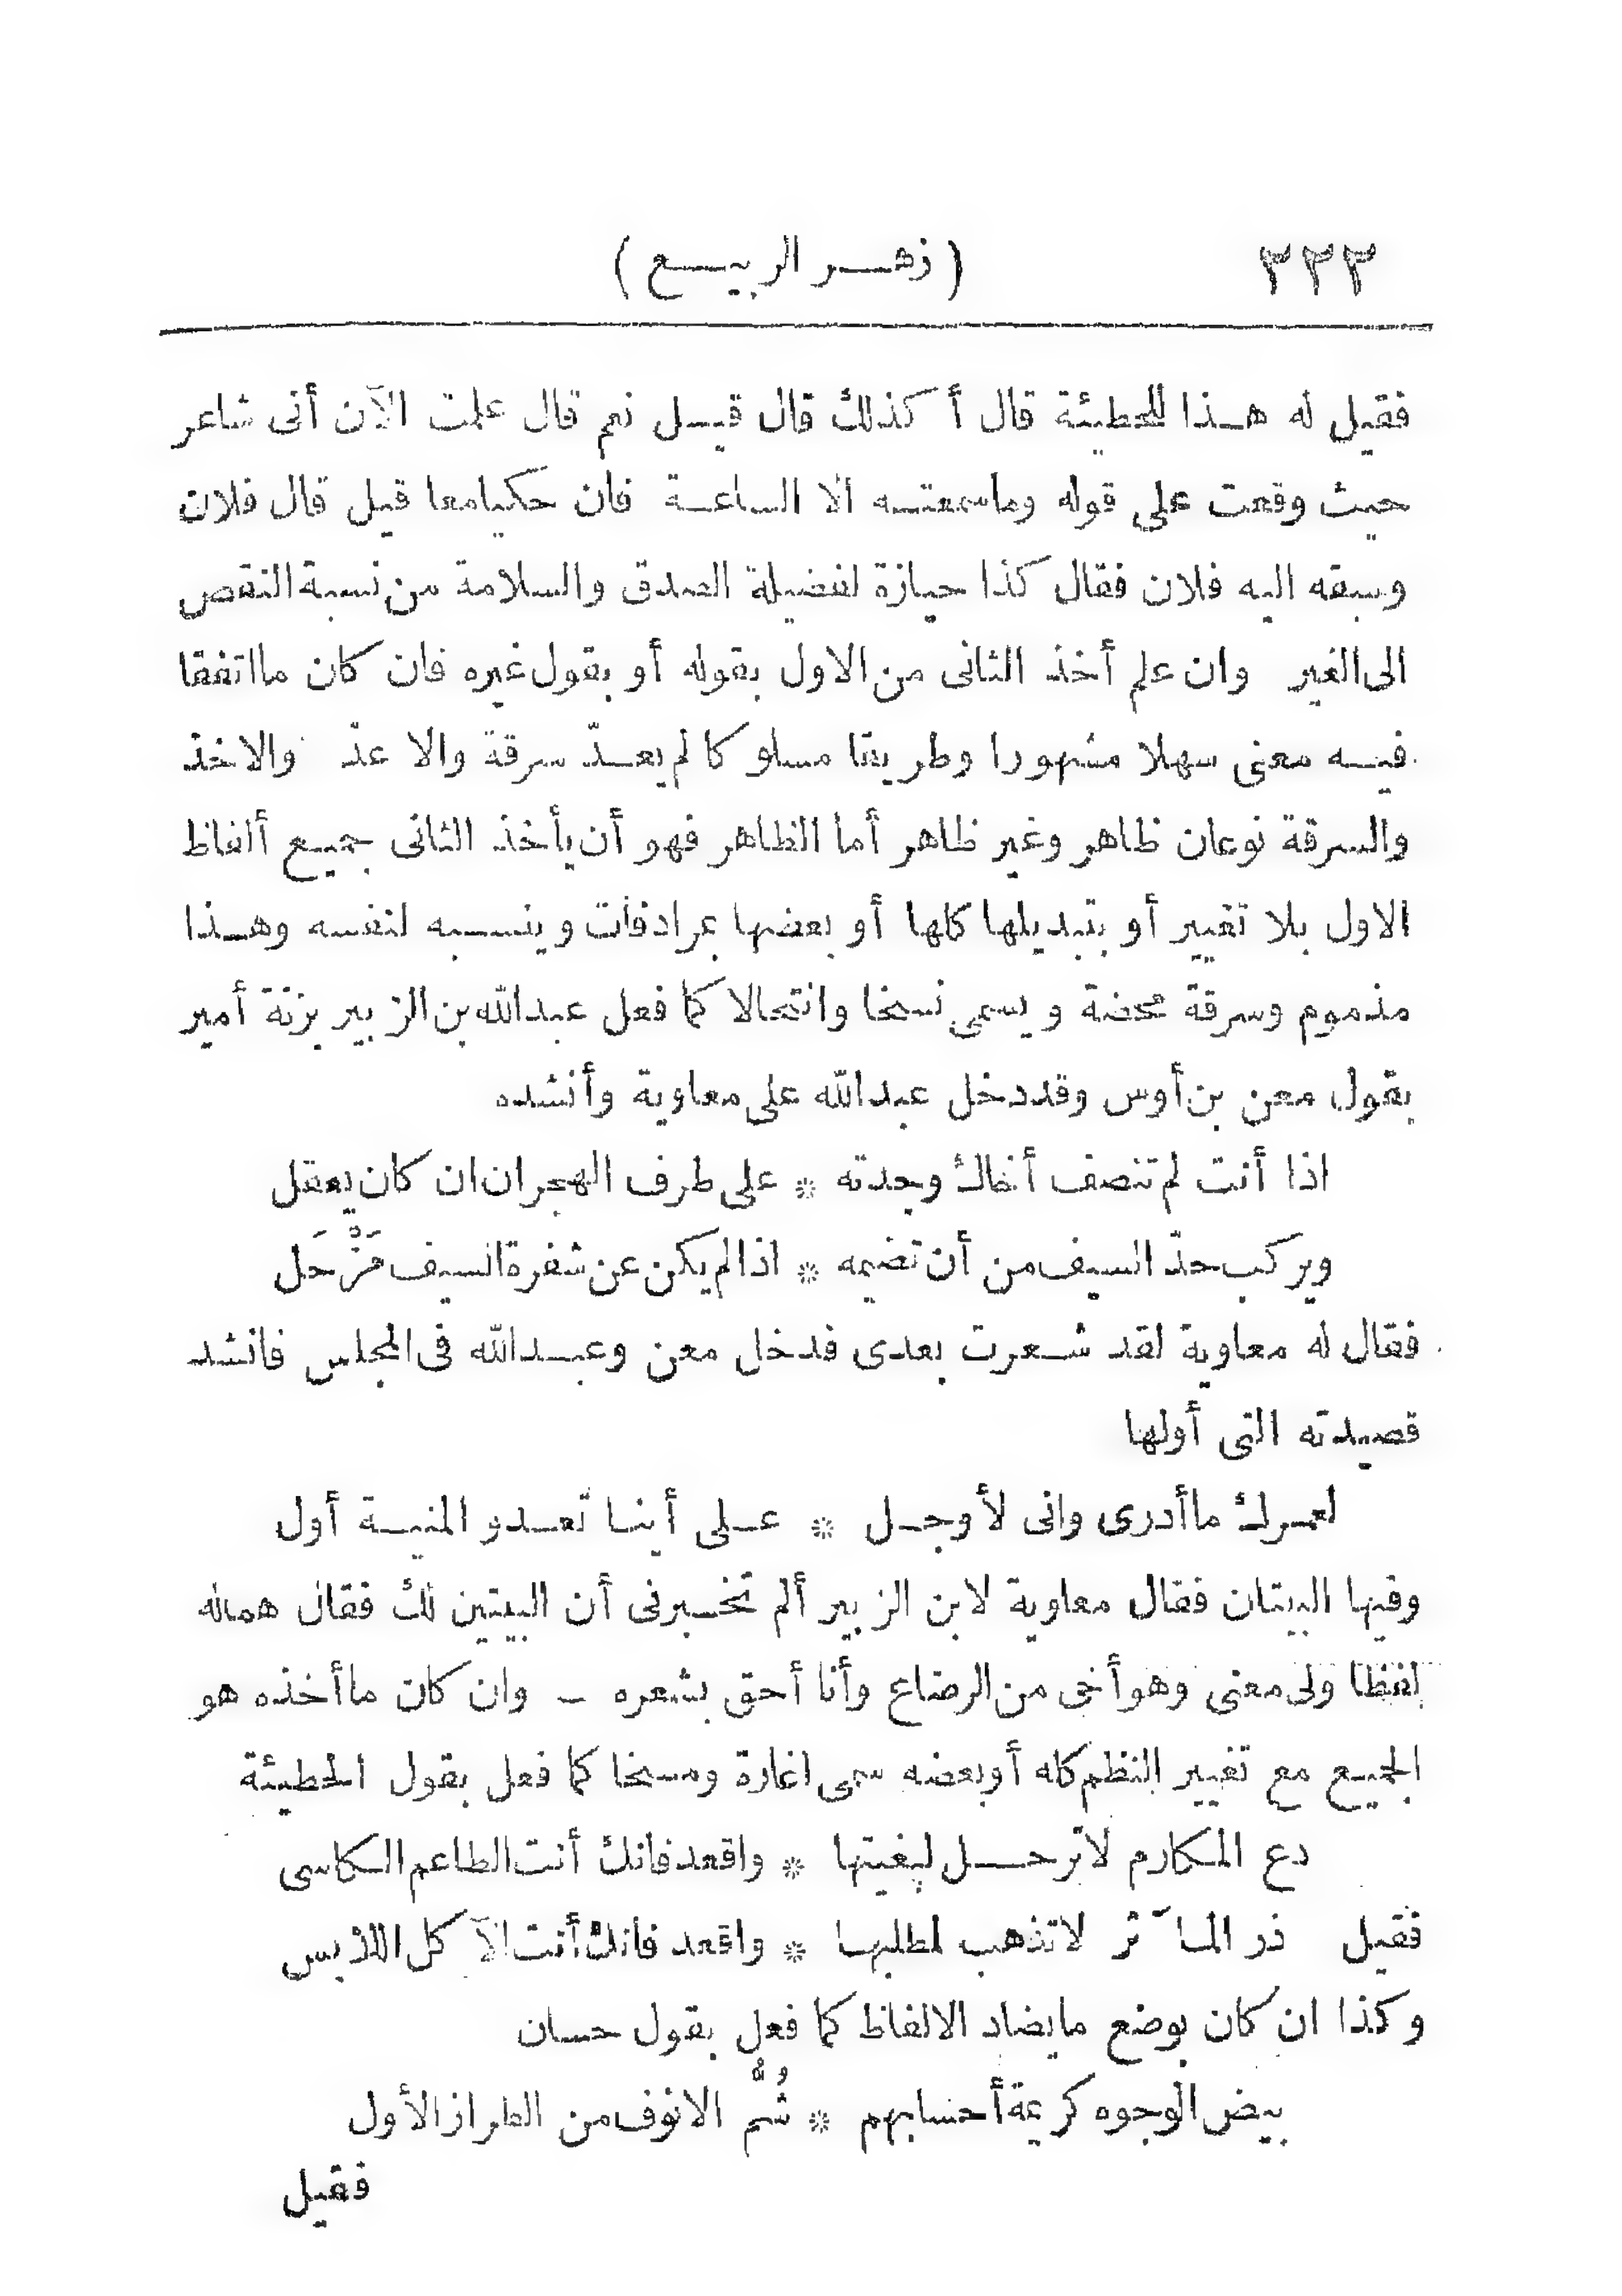 ٢٣٣ (زهر الربيع)
فقيل له هذا للحطيئة قال أكذلك قال قيل نعم قال علمت الآن أنى شاعر
حيث وقعت على قوله وماسمعته الا الساعة فان حكيامعا قيل قال فلان
وسبقه اليه فلان فقال كذا حيازة لفضيلة الصدق والسلامة من نسبة النقص
الى الغير وان علم أخذ الثانى من الاول بقوله أو بقول غيره فان كان مااتفقا
فيه معنى سهلا مشهورا وطريقا مسلوكا لم يعدّ سرقة والا عدّ والاخذ
والسرقة نوعان ظاهر وغير ظاهر أما الظاهر فهو أن يأخذ الثانى جميع ألفاظ
الاول بلا تغيير أو بتبديلها كلها أو بعضها بمرادفات وينسبه لنفسه وهذا
مذموم وسرقة محضة ويسمى نسخا وانتحالا كما فعل عبدالله بن الزبير بزنة أمير
بقول معن بن أوس وقددخل عبدالله على معاوية وأنشده
اذا أنت لم تنصف أخاك وجدته * على طرف الهجران ان كان يعقل
ويركب حدّ السيف من أن تضيمه * اذالم يكن عن شفرة السيف مَزْحَل
فقال له معاوية لقد شعرت بعدى فدخل معن وعبدالله فى المجلس فانشد
قصيدته التى أولها
لعمرك ماأدرى وانى لأوجل * على أينا تعدو المنية أول
وفيها البيتان فقال معاوية لابن الزبير ألم تخبرنى أن البيتين لك فقال هماله
لفظا ولى معنى وهو أخى من الرضاع وأنا أحق بشعره ـ وان كان ماأخذه هو
الجميع مع تغيير النظم كله أوبعضه سمى اغارة ومسخا كما فعل بقول الحطيئة
دع المكارم لاترحل لبغيتها * واقعد فانك أنت الطاعم الكاسى
فقيل ذر المآثر لاتذهب لمطلبها * واقعد فانك أنت الآكل اللابس
وكذا ان كان بوضع مايضاد الالفاظ كما فعل بقول حسان
بيض الوجوه كريمة أحسابهم * شُمُّ الانوف من الطراز الأول
فقيل